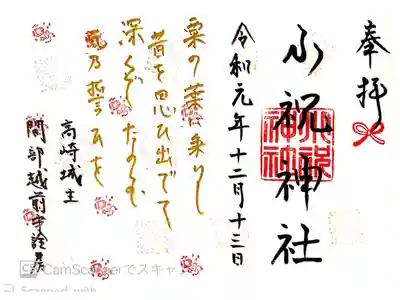 奉拝
小祝神社
令和元年十二月十三日
粟の葉に乗りし
昔を思ひ出でて
深くぞたのむ
乃誓ひを
高崎城主
間部越前守詮房
CS CamScannerでスキャ
Scanned with